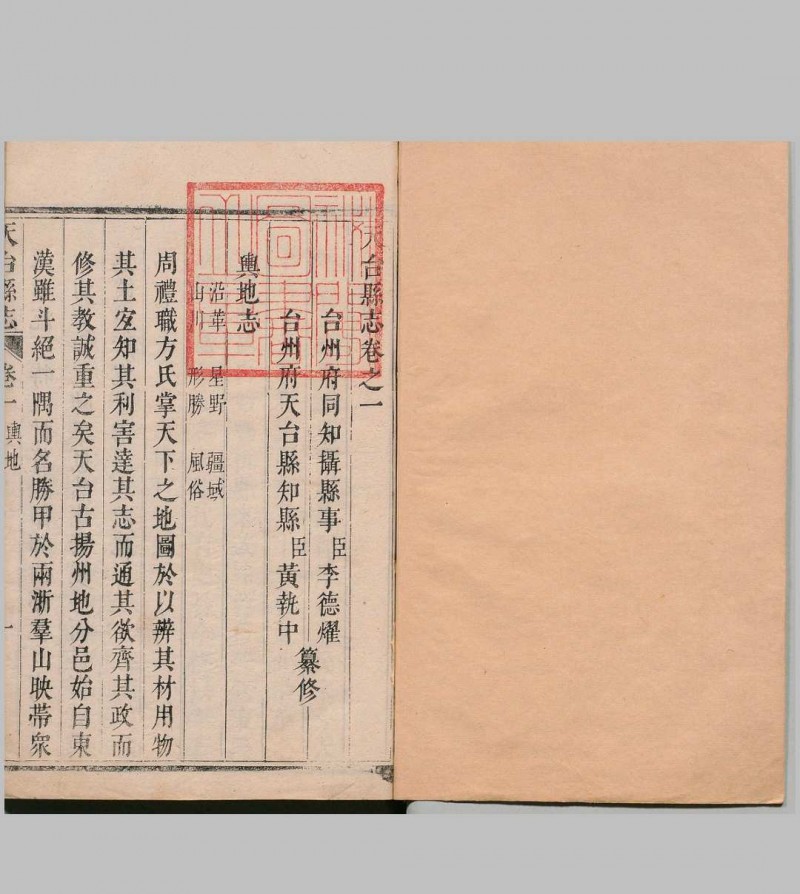 天台縣志卷之一
台州府同知攝縣事臣李德燿
台州府天台縣知縣臣黃執中
纂修
輿地志
沿革 星野 疆域
山川 形勝 風俗
周禮職方氏掌天下之地圖於以辨其材用物
其土宐知其利害達其志而通其欲齊其政而
修其教誠重之矣天台古揚州地分邑始自東
漢雖斗絕一隅而名勝甲於兩浙羣山映帶衆
天台縣志 卷一 輿地 一